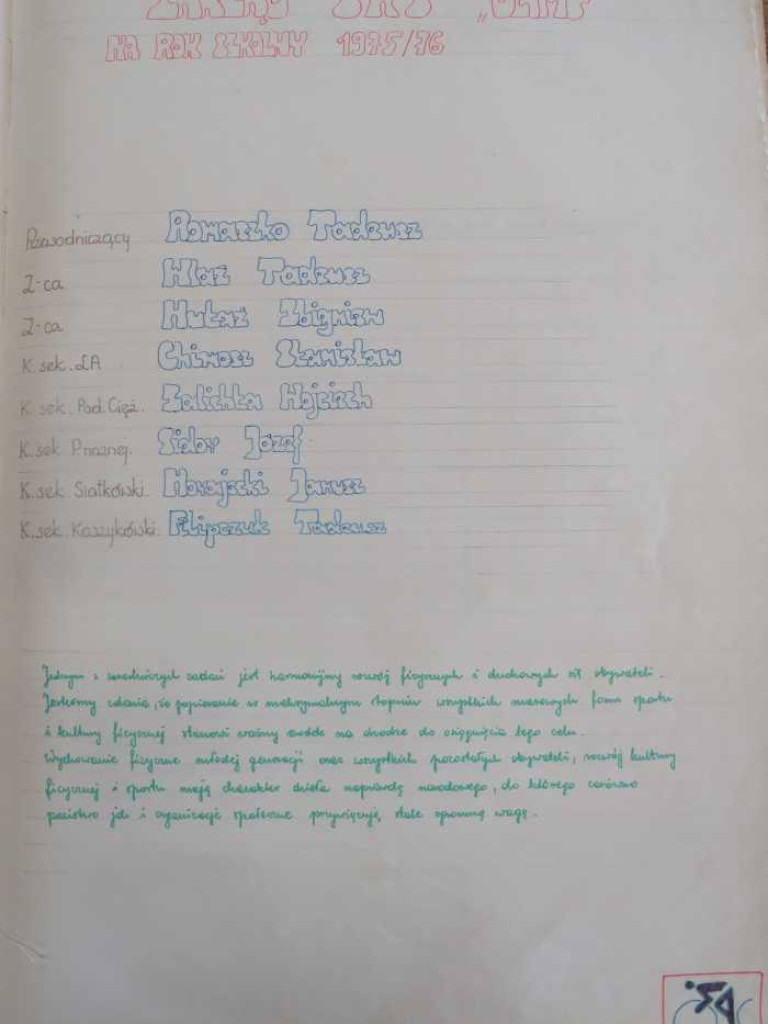 ZARZĄD SKS „OLIMP”
NA ROK SZKOLNY 1975/76
Przewodniczący Romaszko Tadeusz
Z-ca Właź Tadeusz
Z-ca Hułaź Zbigniew
K. sek. LA Chimosz Stanisław
K. sek. Pod. Cięż. Zalichta Wojciech
K. sek. P. nożnej. Sidor Józef
K. sek. Siatkówki. Mosajecki Janusz
K. sek. Koszykówki. Filipczuk Tadeusz
Jednym z zasadniczych zadań jest harmonijny rozwój fizycznych i duchowych sił obywateli.
Jesteśmy zdania, że popieranie w maksymalnym stopniu wszystkich masowych form sportu
i kultury fizycznej stanowi ważny środek na drodze do osiągnięcia tego celu.
Wychowanie fizyczne młodej generacji oraz wszystkich pozostałych obywateli, rozwój kultury
fizycznej i sportu mają charakter dzieła naprawdę narodowego, do którego zarówno
państwo jak i organizacje społeczne przywiązują stale ogromną wagę.